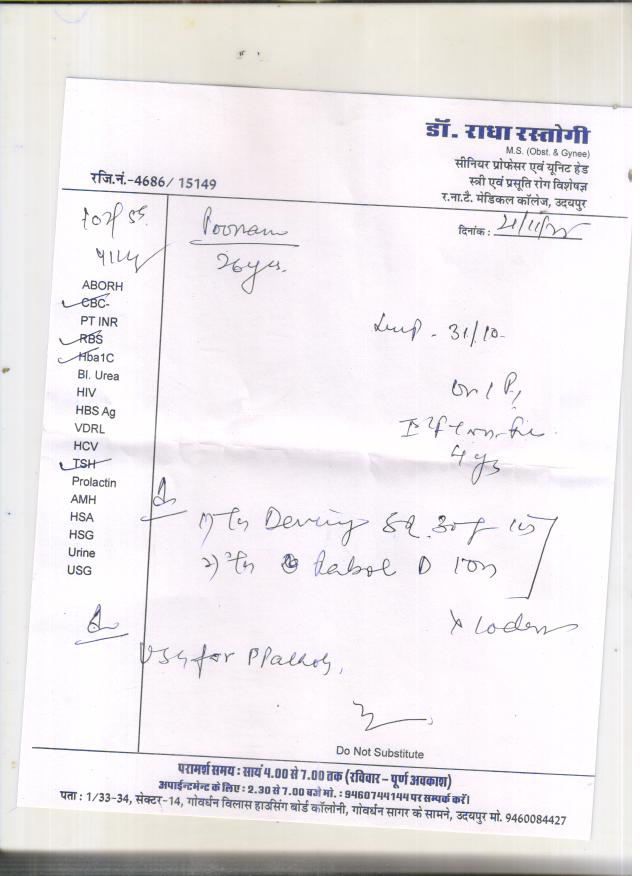 डॉ. राधा रस्तोगी
M.S. (Obst. & Gynec)
सीनियर प्रोफेसर एवं यूनिट हेड
स्त्री एवं प्रसूति रोग विशेषज्ञ
र.ना.टै. मेडिकल कॉलेज, उदयपुर
रजि.नं.-4686/ 15149
दिनांक :
Poonam
26 yrs.
ABORH
CBC-
PT INR
RBS
Hba1C
Bl. Urea
HIV
HBS Ag
VDRL
HCV
TSH
Prolactin
AMH
HSA
HSG
Urine
USG
Lmp - 31/10-
4 yrs
1)
2) Rabol D
USG for
Do Not Substitute
परामर्श समय : सायं 4.00 से 7.00 तक (रविवार - पूर्ण अवकाश)
अपाईन्टमेन्ट के लिए : 2.30 से 7.00 बजे मो. : 9460744144 पर सम्पर्क करें।
पता : 1/33-34, सेक्टर-14, गोवर्धन विलास हाउसिंग बोर्ड कॉलोनी, गोवर्धन सागर के सामने, उदयपुर मो. 9460084427